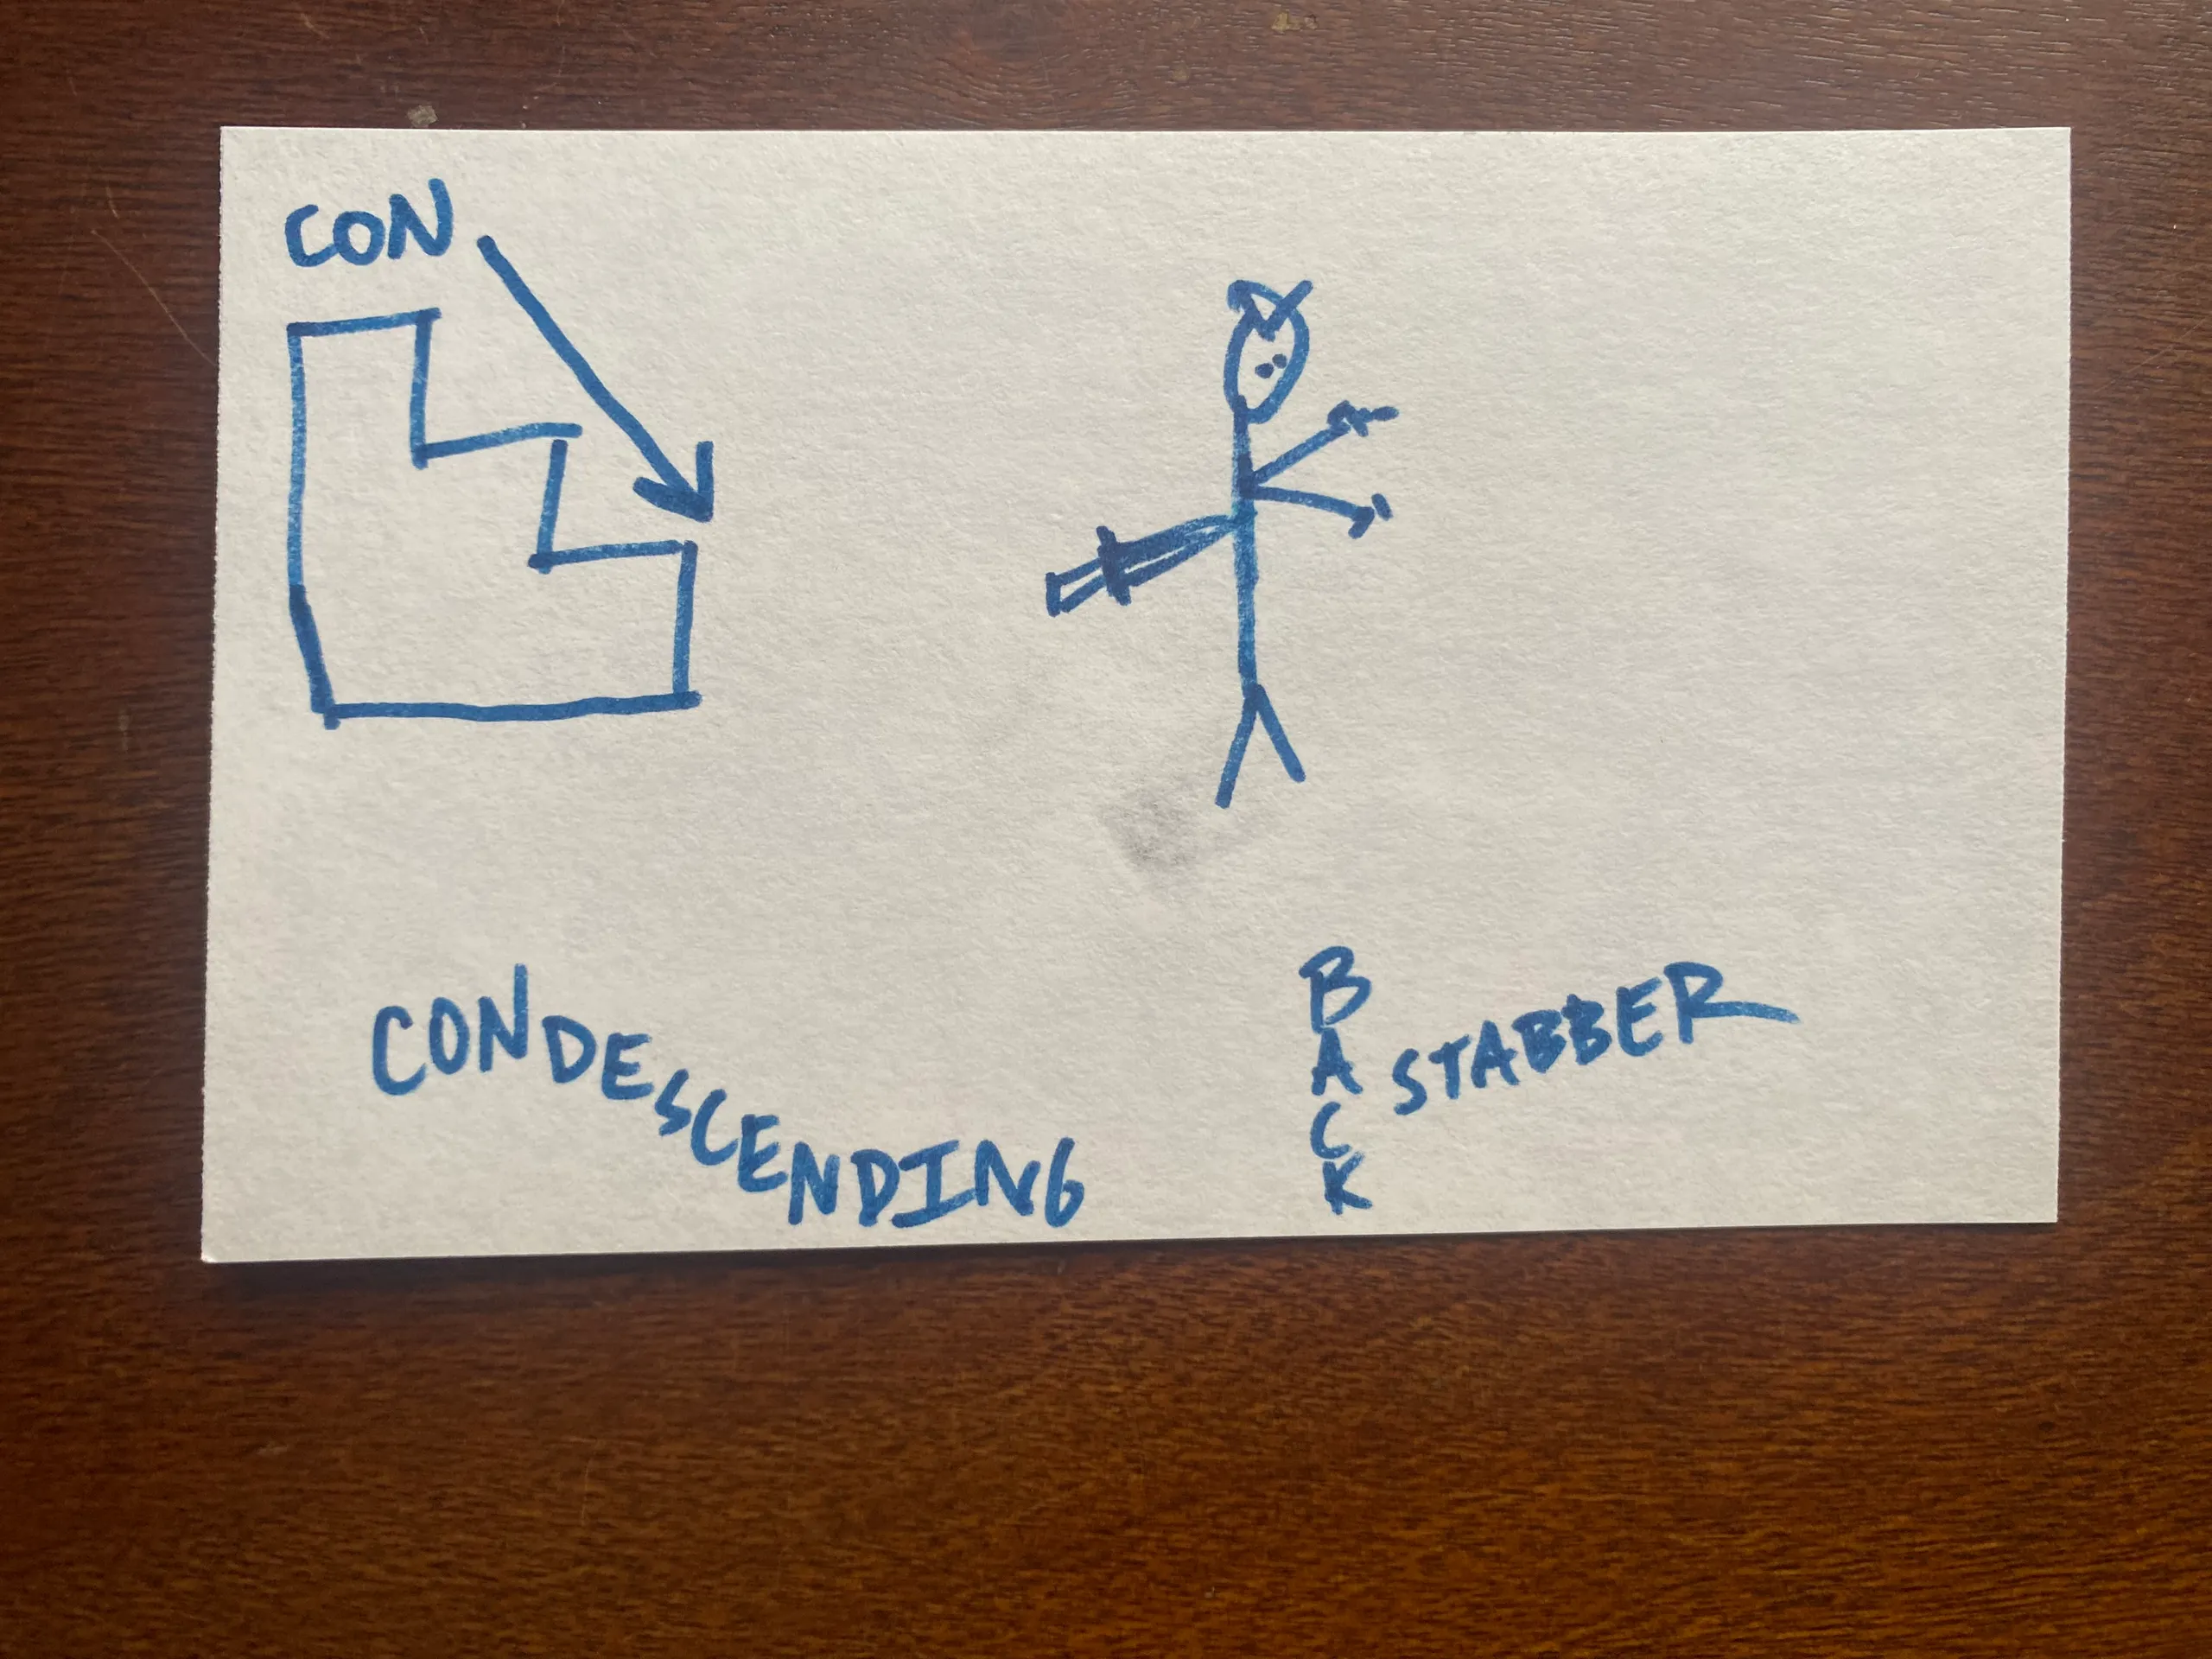 CON
CONDESCENDING
BACK
STABBER